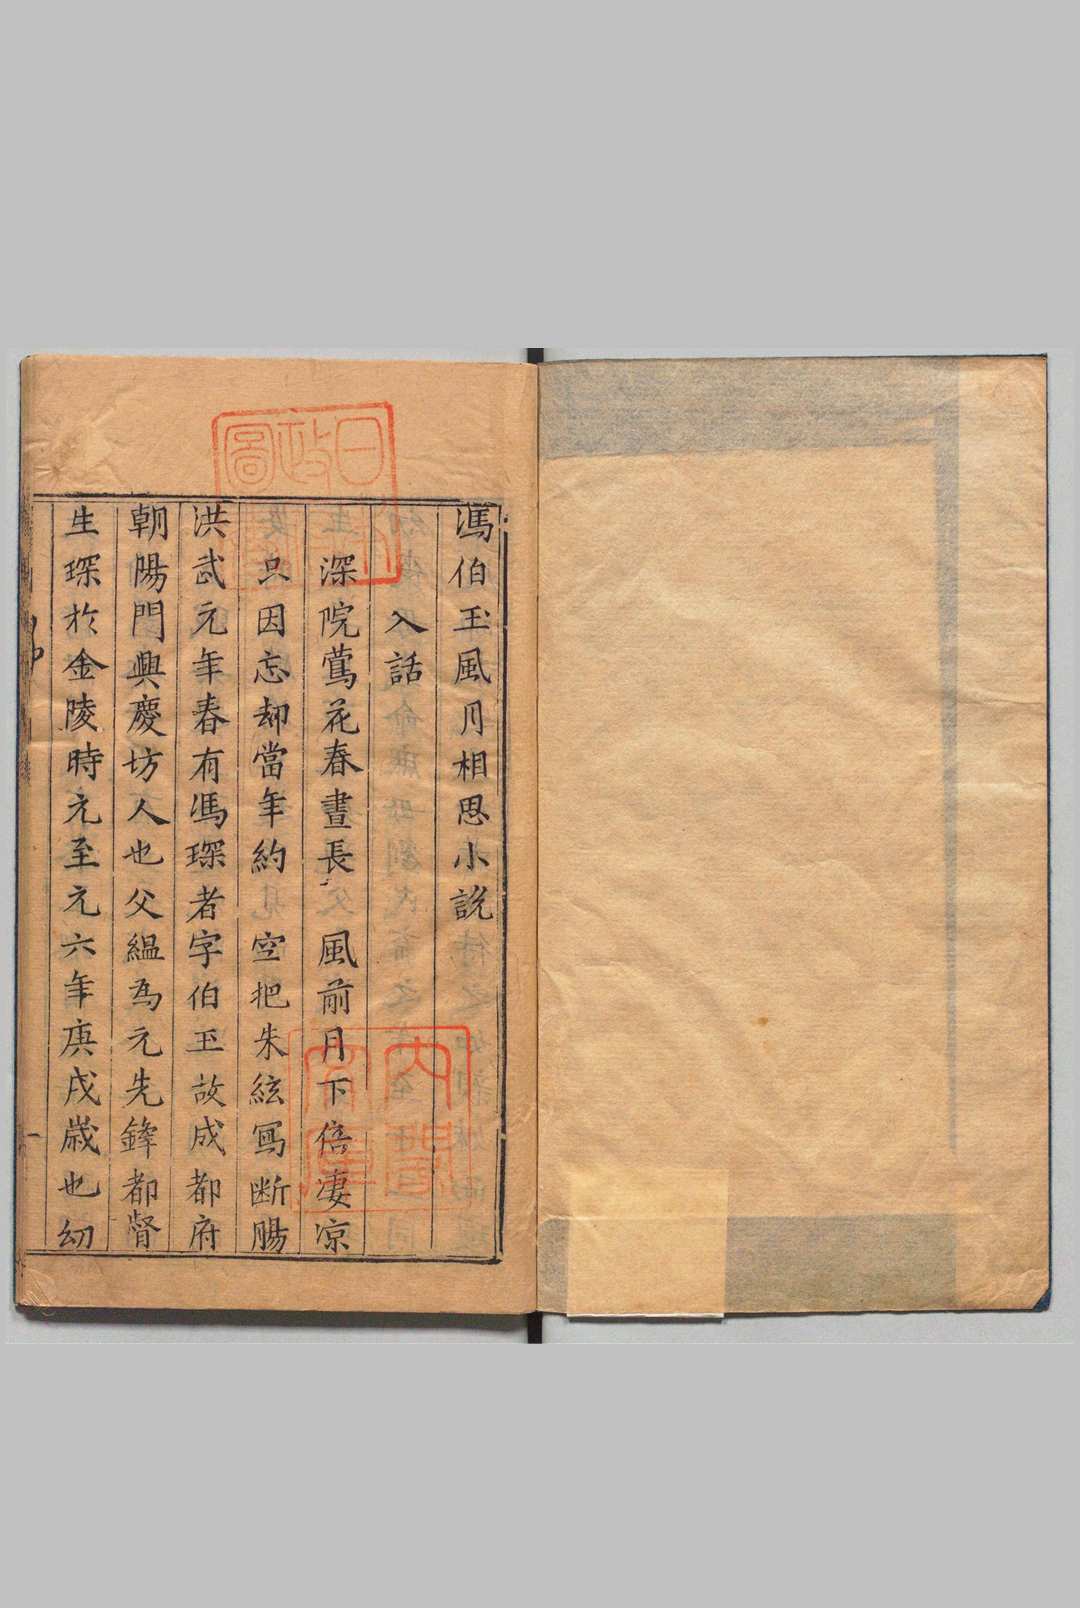 馮伯玉風月相思小說
入話
深院鶯花春晝長 風前月下倍凄凉
只因忘却當年約 空把朱絃寫断腸
洪武元年春有馮琛者字伯玉故成都府
朝陽門興慶坊人也父緼為元先鋒都督
生琛於金陵時元至元六年庚戌歲也幼